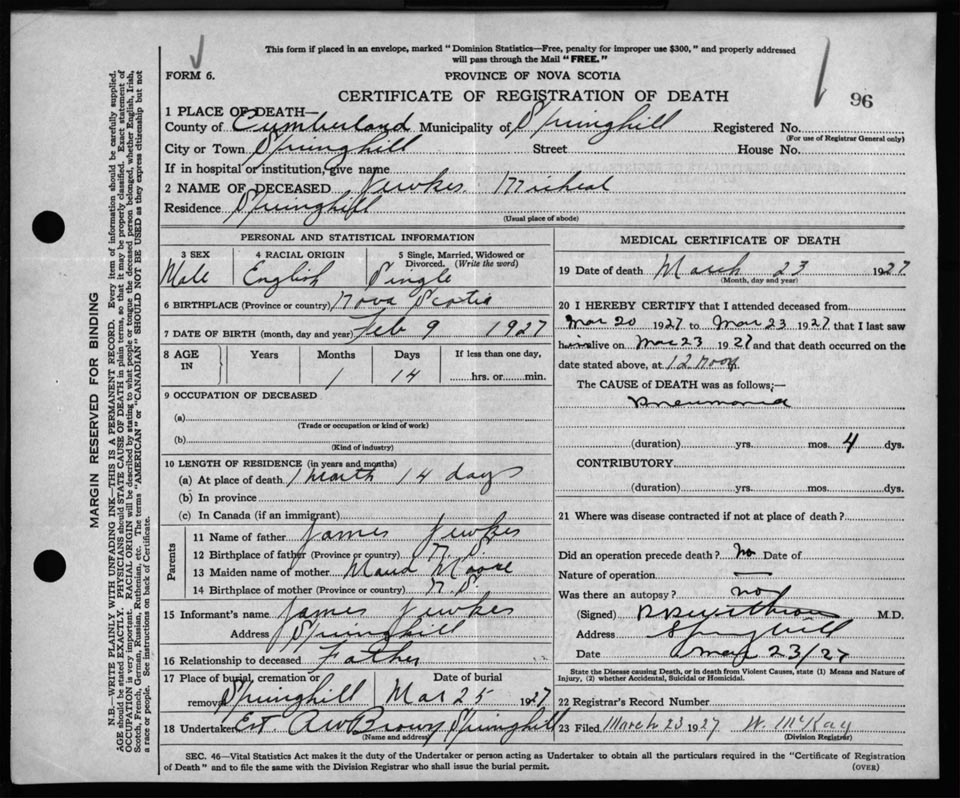 This form if placed in an envelope, marked "Dominion Statistics—Free, penalty for improper use $300," and properly addressed
will pass through the Mail "FREE."
FORM 6.
PROVINCE OF NOVA SCOTIA
CERTIFICATE OF REGISTRATION OF DEATH
96
1 PLACE OF DEATH—
County of Cumberland Municipality of Springhill Registered No.
(For use of Registrar General only)
City or Town Springhill Street House No.
If in hospital or institution, give name
2 NAME OF DECEASED Jewkes Micheal
Residence Springhill
(Usual place of abode)
PERSONAL AND STATISTICAL INFORMATION
3 SEX 4 RACIAL ORIGIN 5 Single, Married, Widowed or Divorced. (Write the word)
Male English Single
6 BIRTHPLACE (Province or country) Nova Scotia
7 DATE OF BIRTH (month, day and year) Feb 9 1927
8 AGE IN Years Months Days If less than one day,
1 14 hrs. or min.
9 OCCUPATION OF DECEASED
(a)
(Trade or occupation or kind of work)
(b)
(Kind of industry)
10 LENGTH OF RESIDENCE (in years and months)
(a) At place of death 1 month 14 days
(b) In province
(c) In Canada (if an immigrant)
Parents
11 Name of father James Jewkes
12 Birthplace of father (Province or country) N. S.
13 Maiden name of mother Maud Moore
14 Birthplace of mother (Province or country) N. S.
15 Informant's name James Jewkes
Address Springhill
16 Relationship to deceased Father
17 Place of burial, cremation or Date of burial
removal Springhill Mar 25 1927
18 Undertaker Est A W Brown Springhill
(Name and address)
MEDICAL CERTIFICATE OF DEATH
19 Date of death March 23 1927
(Month, day and year)
20 I HEREBY CERTIFY that I attended deceased from
Mar 20 1927 to Mar 23 1927 that I last saw
him alive on Mar 23 1927 and that death occurred on the
date stated above, at 12 noon
The CAUSE of DEATH was as follows:—
Pneumonia
(duration) yrs. mos. 4 dys.
CONTRIBUTORY
(duration) yrs. mos. dys.
21 Where was disease contracted if not at place of death?
Did an operation precede death? no Date of
Nature of operation —
Was there an autopsy? no
(Signed) M.D.
Address Springhill
Date Mar 23/27
State the Disease causing Death, or in death from Violent Causes, state (1) Means and Nature of
Injury, (2) whether Accidental, Suicidal or Homicidal.
22 Registrar's Record Number
23 Filed March 23 1927 W. McKay
(Division Registrar)
SEC. 46—Vital Statistics Act makes it the duty of the Undertaker or person acting as Undertaker to obtain all the particulars required in the "Certificate of Registration
of Death" and to file the same with the Division Registrar who shall issue the burial permit.
(OVER)
MARGIN RESERVED FOR BINDING
N.B.—WRITE PLAINLY WITH UNFADING INK—THIS IS A PERMANENT RECORD. Every item of information should be carefully supplied.
AGE should be stated EXACTLY. PHYSICIANS should STATE CAUSE OF DEATH in plain terms, so that it may be properly classified. Exact statement of
OCCUPATION is very important. RACIAL ORIGIN will be described by stating to what people or tongue the deceased person belonged, whether English, Irish,
Scotch, French, German, Russian, Ruthenian, etc. The terms "AMERICAN" or "CANADIAN" SHOULD NOT BE USED as they express citizenship but not
a race or people. See instructions on back of Certificate.